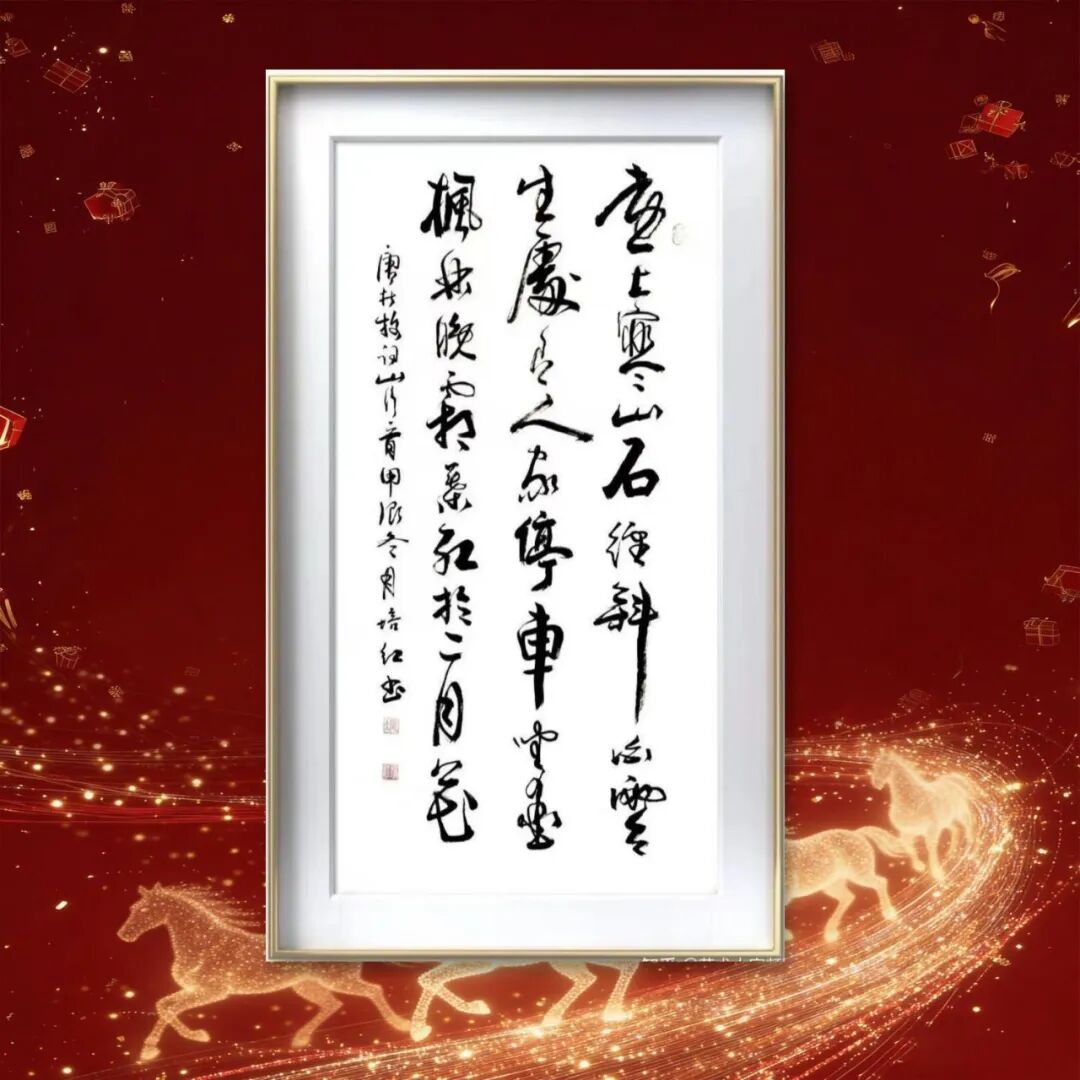 遠上寒山石徑斜白雲
生處有人家停車坐愛
楓林晚霜葉紅於二月花
唐杜牧詩山行首甲辰冬月培红书